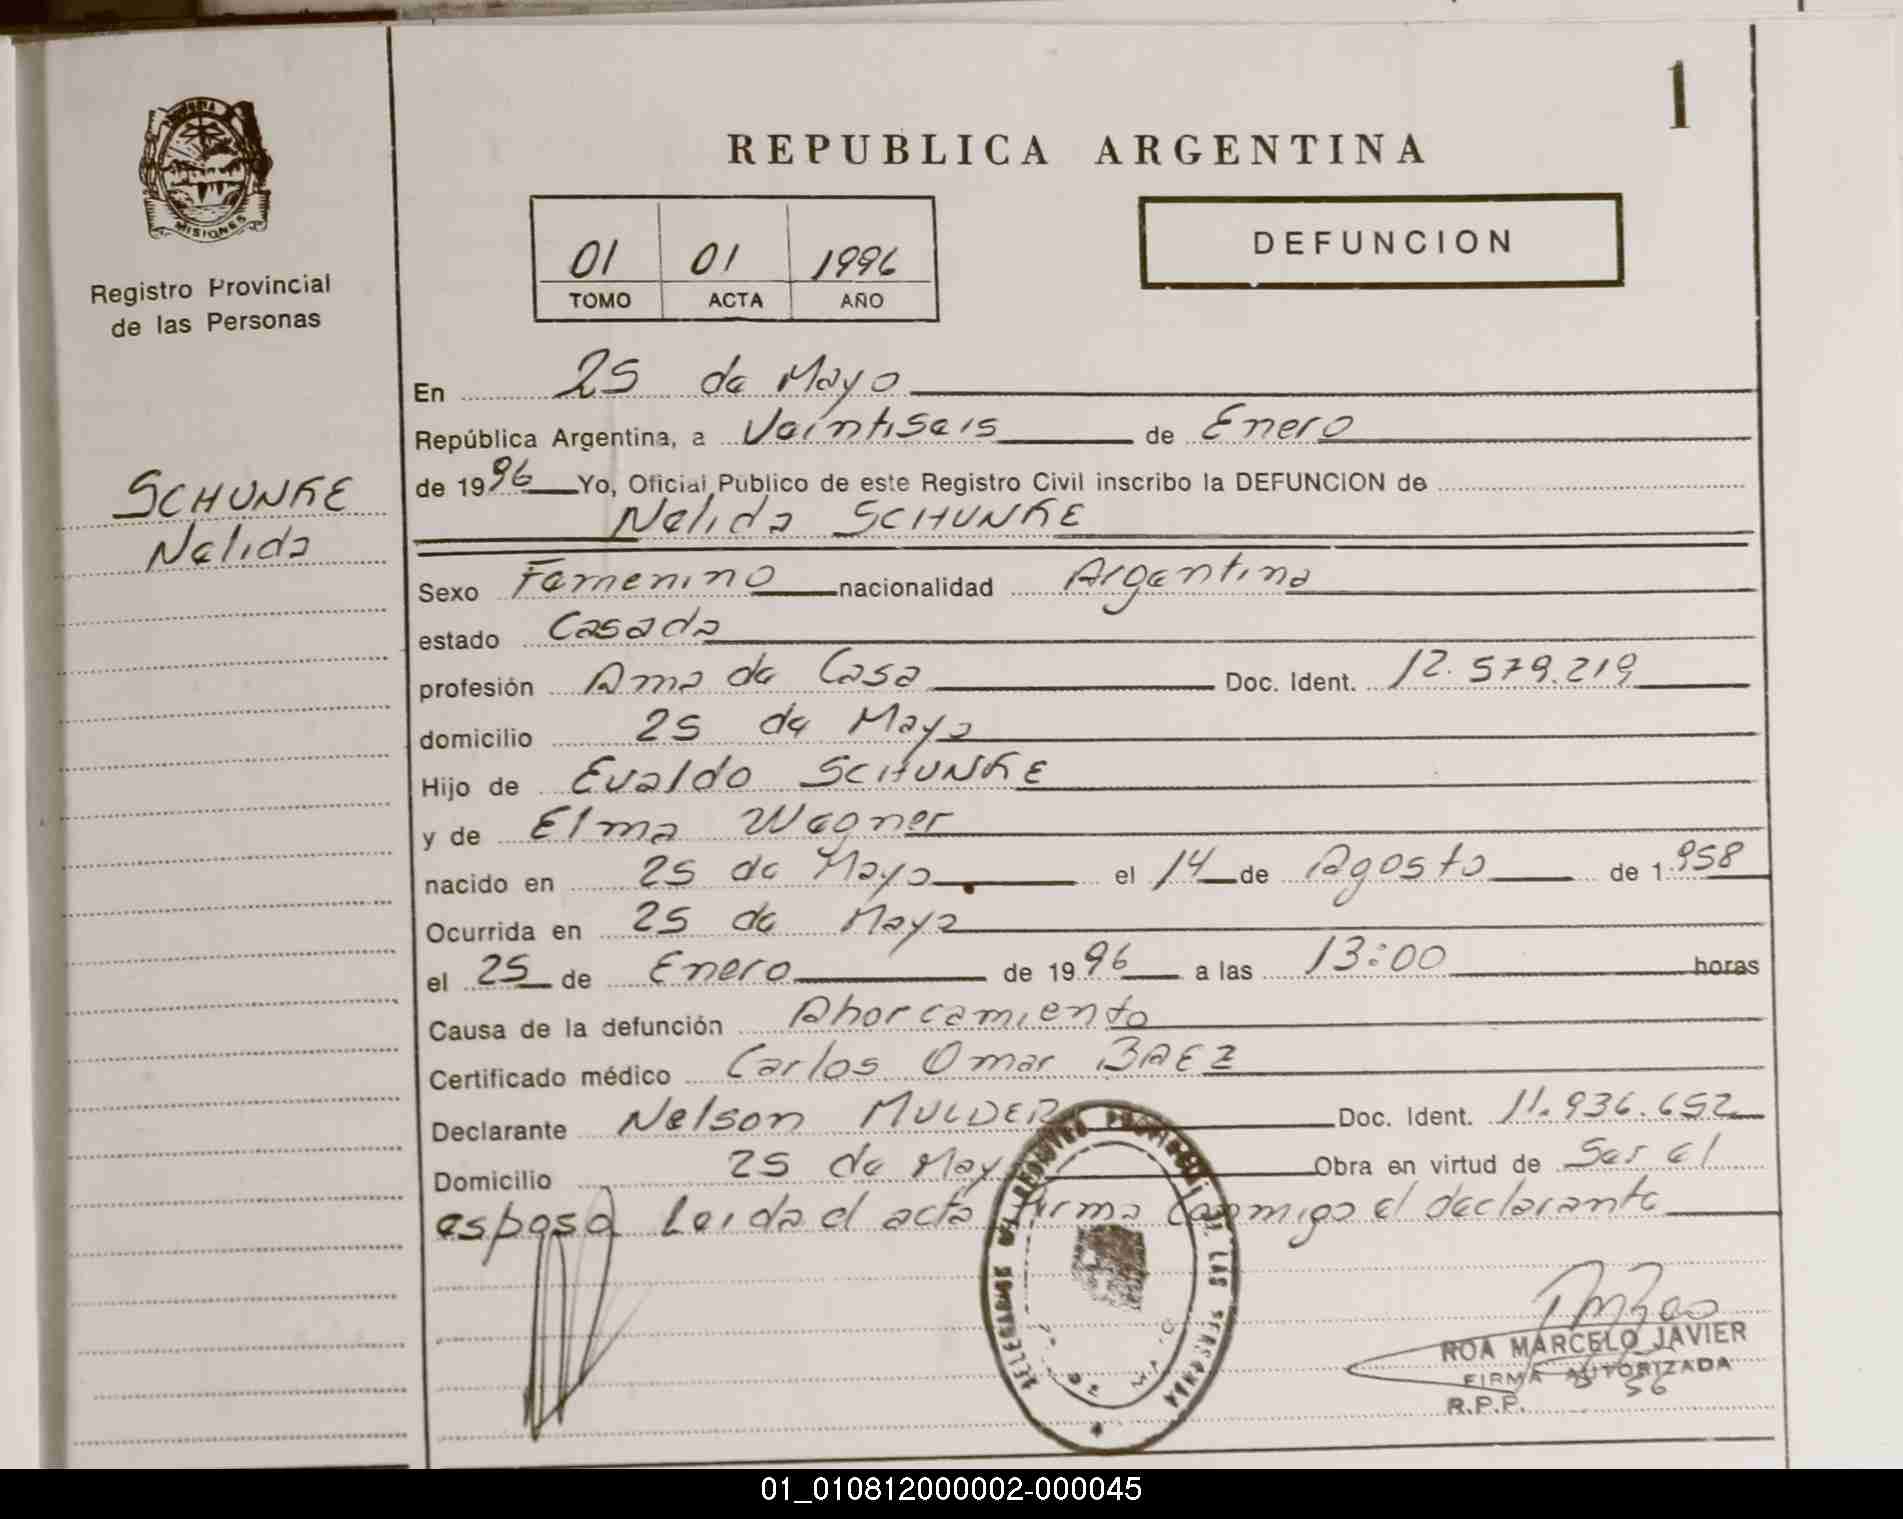 1
REPUBLICA ARGENTINA
PROVINCIA
MISIONES
Registro Provincial
de las Personas
01 01 1996
TOMO ACTA AÑO
DEFUNCION
SCHUNKE
Nelida
En 25 de Mayo
República Argentina, a Veintiseis de Enero
de 1996 Yo, Oficial Público de este Registro Civil inscribo la DEFUNCION de
Nelida SCHUNKE
Sexo Femenino nacionalidad Argentina
estado Casada
profesión Ama de Casa Doc. Ident. 12.579.219
domicilio 25 de Mayo
Hijo de Evaldo SCHUNKE
y de Elma Wagner
nacido en 25 de Mayo el 14 de Agosto de 1.958
Ocurrida en 25 de Mayo
el 25 de Enero de 1996 a las 13:00 horas
Causa de la defunción Ahorcamiento
Certificado médico Carlos Omar BAEZ
Declarante Nelson MULDER Doc. Ident. 11.936.652
Domicilio 25 de May Obra en virtud de Ser el
esposo Leida el acta firma conmigo el declarante
ROA MARCELO JAVIER
FIRMA AUTORIZADA
56
R.P.P.
01_010812000002-000045